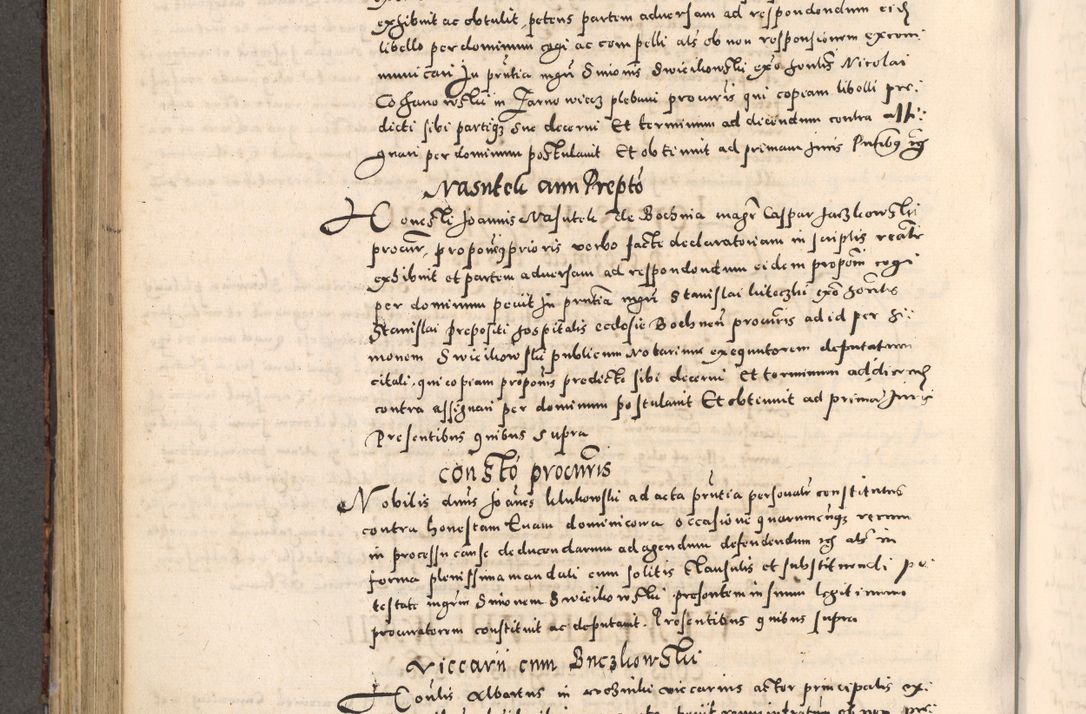 exhibuit ac obtulit, petens partem adversam ad respondendum eidem
libello per dominum cogi ac compelli als ob non responsionem excom
municari In pntia mgri Simonis Swiecikowskii exo honlis Nicolai
Cochanowskii in Jarnowiecz plebani procuris qui copiam libelli pre
dicti sibi partiqz sue decerni Et terminum ad dicendum contra assi
gnari per dominum postulavit Et obtinuit ad primam Juris Pntibus
Nasuteli cum Preptó
Honesti Joannis Nasuteli de Bochnia magr Caspar Jaczkowskii
procur, proponis prioris verbo facte declaratoriam in scriptis reale
exhibuit et partem adversam ad respondendum eidem proponi cogi
per dominum peciit In pntia mgri Stanislai luteczki exo honlis
Stanislai prepositi hospitalis ecclesie Bochnen procuris ad id per Si
monem Swiecikowskii publicum Notarium exequutorem deputatum
citati, qui copiam proponis predicte sibi decerni et terminum ad dicend
contra assignari per dominum postulavit Et obtinuit ad prima Juris
Presentibus quibus supra
Constó procuris
Nobilis dnus Joanes Mukowski ad acta pntia personalr constitutus
contra honestam Evam dominicowa occasione quarumcuqz rerum
in processu cause deducendarum ad agendum defendendum als in
forma plenissima mandati cum solitis clausulis et substituendi po
testate mgrm Simonem Swiecikowskii presentem in suum legitimum
procuratorem constituit ac deputavit. Presentibus quibus supra
Viccarii cum Buczkowskii
Honlis Albertus in viccarius actor principalis ex